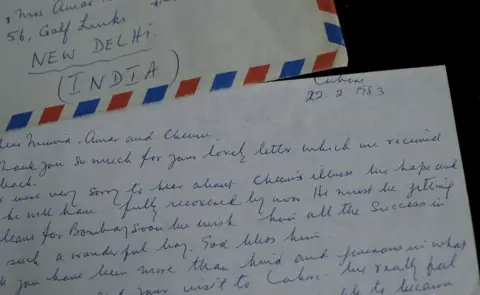 & Mrs Amar
56, Golf Links
NEW DELHI
(INDIA)
Lahore
22. 2. 1983
Dear Munna, Amar and
Thank you so much for your lovely letter which we received
back.
were very sorry to hear about illness. We hope and
he will have fully recovered by now. He must be getting
leave for Bombay soon. We wish him all the Success in
such a wonderful boy. God bless him.
you have been more than kind and in what
and your visit to Lahore. We really feel
to become